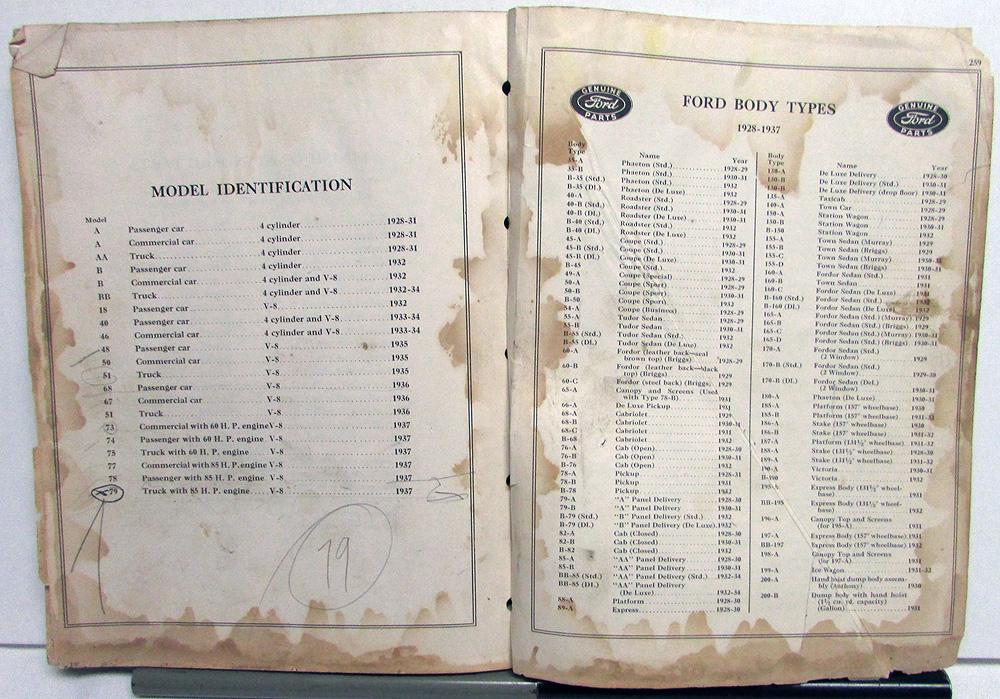 MODEL IDENTIFICATION
Model
A Passenger car 4 cylinder 1928-31
A Commercial car 4 cylinder 1928-31
AA Truck 4 cylinder 1928-31
B Passenger car 4 cylinder 1932
B Commercial car 4 cylinder and V-8 1932
BB Truck 4 cylinder and V-8 1932-34
18 Passenger car V-8 1932
40 Passenger car 4 cylinder and V-8 1933-34
46 Commercial car 4 cylinder and V-8 1933-34
48 Passenger car V-8 1935
50 Commercial car V-8 1935
51 Truck V-8 1935
68 Passenger car V-8 1936
67 Commercial car V-8 1936
51 Truck V-8 1936
73 Commercial with 60 H. P. engine V-8 1937
74 Passenger with 60 H. P. engine V-8 1937
75 Truck with 60 H. P. engine V-8 1937
77 Commercial with 85 H. P. engine V-8 1937
78 Passenger with 85 H. P. engine V-8 1937
79 Truck with 85 H. P. engine V-8 1937
79
259
GENUINE Ford PARTS
FORD BODY TYPES
GENUINE Ford PARTS
1928-1937
Body Type Name Year
35-A Phaeton (Std.) 1928-29
35-B Phaeton (Std.) 1930-31
B-35 (Std.) Phaeton (Std.) 1932
B-35 (Dl.) Phaeton (De Luxe) 1932
40-A Roadster (Std.) 1928-29
40-B (Std.) Roadster (Std.) 1930-31
40-B (Dl.) Roadster (De Luxe) 1930-31
B-40 (Std.) Roadster (Std.) 1932
B-40 (Dl.) Roadster (De Luxe) 1932
45-A Coupe (Std.) 1928-29
45-B (Std.) Coupe (Std.) 1930-31
45-B (Dl.) Coupe (De Luxe) 1930-31
B-45 Coupe (Std.) 1932
49-A Coupe (Special) 1928-29
50-A Coupe (Sport) 1928-29
50-B Coupe (Sport) 1930-31
B-50 Coupe (Sport) 1932
54-A Coupe (Business) 1928-29
55-A Tudor Sedan 1928-29
55-B Tudor Sedan 1930-31
B-55 (Std.) Tudor Sedan (Std.) 1932
B-55 (Dl.) Tudor Sedan (De Luxe) 1932
60-A Fordor (leather back—seal
brown top) (Briggs) 1928-29
60-B Fordor (leather back—black
top) (Briggs) 1929
60-C Fordor (steel back) (Briggs) 1929
65-A Canopy and Screens (Used
with Type 78-B) 1931
66-A De Luxe Pickup 1931
68-A Cabriolet 1929
68-B Cabriolet 1930-31
68-C Cabriolet 1931
B-68 Cabriolet 1932
76-A Cab (Open) 1928-30
76-B Cab (Open) 1930-31
B-76 Cab (Open) 1932
78-A Pickup 1928-31
78-B Pickup 1931
B-78 Pickup 1932
79-A "A" Panel Delivery 1928-30
79-B "A" Panel Delivery 1930-31
B-79 (Std.) "B" Panel Delivery (Std.) 1932
B-79 (Dl.) "B" Panel Delivery (De Luxe) 1932
82-A Cab (Closed) 1928-30
82-B Cab (Closed) 1930-31
B-82 Cab (Closed) 1932
85-A "AA" Panel Delivery 1928-30
85-B "AA" Panel Delivery 1930-31
BB-85 (Std.) "AA" Panel Delivery (Std.) 1932-34
BB-85 (Dl.) "AA" Panel Delivery
(De Luxe) 1932-34
88-A Platform 1928-30
89-A Express 1928-30
Body Type Name Year
130-A De Luxe Delivery 1928-30
130-B De Luxe Delivery (Std.) 1930-31
130-B De Luxe Delivery (drop floor) 1930-31
135-A Taxicab 1928-29
140-A Town Car 1928-29
150-A Station Wagon 1928-29
150-B Station Wagon 1930-31
B-150 Station Wagon 1932
155-A Town Sedan (Murray) 1929
155-B Town Sedan (Briggs) 1929
155-C Town Sedan (Murray) 1930-31
155-D Town Sedan (Briggs) 1930-31
160-A Fordor Sedan (Std.) 1931
160-B Town Sedan 1931
160-C Fordor Sedan (De Luxe) 1931
B-160 (Std.) Fordor Sedan (Std.) 1932
B-160 (Dl.) Fordor Sedan (De Luxe) 1932
165-A Fordor Sedan (Std.) (Murray) 1929
165-B Fordor Sedan (Std.) (Briggs) 1929
165-C Fordor Sedan (Std.) (Murray) 1930-31
165-D Fordor Sedan (Std.) (Briggs) 1930-31
170-A Fordor Sedan (Std.)
(2 Window) 1929
170-B (Std.) Fordor Sedan (Std.)
(2 Window) 1929-30
170-B (Dl.) Fordor Sedan (Del.)
(2 Window) 1930-31
180-A Phaeton (De Luxe) 1930-31
185-A Platform (157" wheelbase) 1930
185-B Platform (157" wheelbase) 1931-32
186-A Stake (157" wheelbase) 1930
186-B Stake (157" wheelbase) 1931-32
187-A Platform (131½" wheelbase) 1931-32
188-A Stake (131½" wheelbase) 1928-30
189-A Stake (131½" wheelbase) 1931-32
190-A Victoria 1930-31
B-190 Victoria 1932
195-A Express Body (131½" wheel-
base) 1931
BB-195 Express Body (131½" wheel-
base) 1932
196-A Canopy Top and Screens
(for 195-A) 1931
197-A Express Body (157" wheelbase) 1931
BB-197 Express Body (157" wheelbase) 1932
198-A Canopy Top and Screens
(for 197-A) 1931
199-A Ice Wagon 1931-32
200-A Hand hoist dump body assem-
bly (Anthony) 1930
200-B Dump body with hand hoist
(1½ cu. yd. capacity)
(Galion) 1931